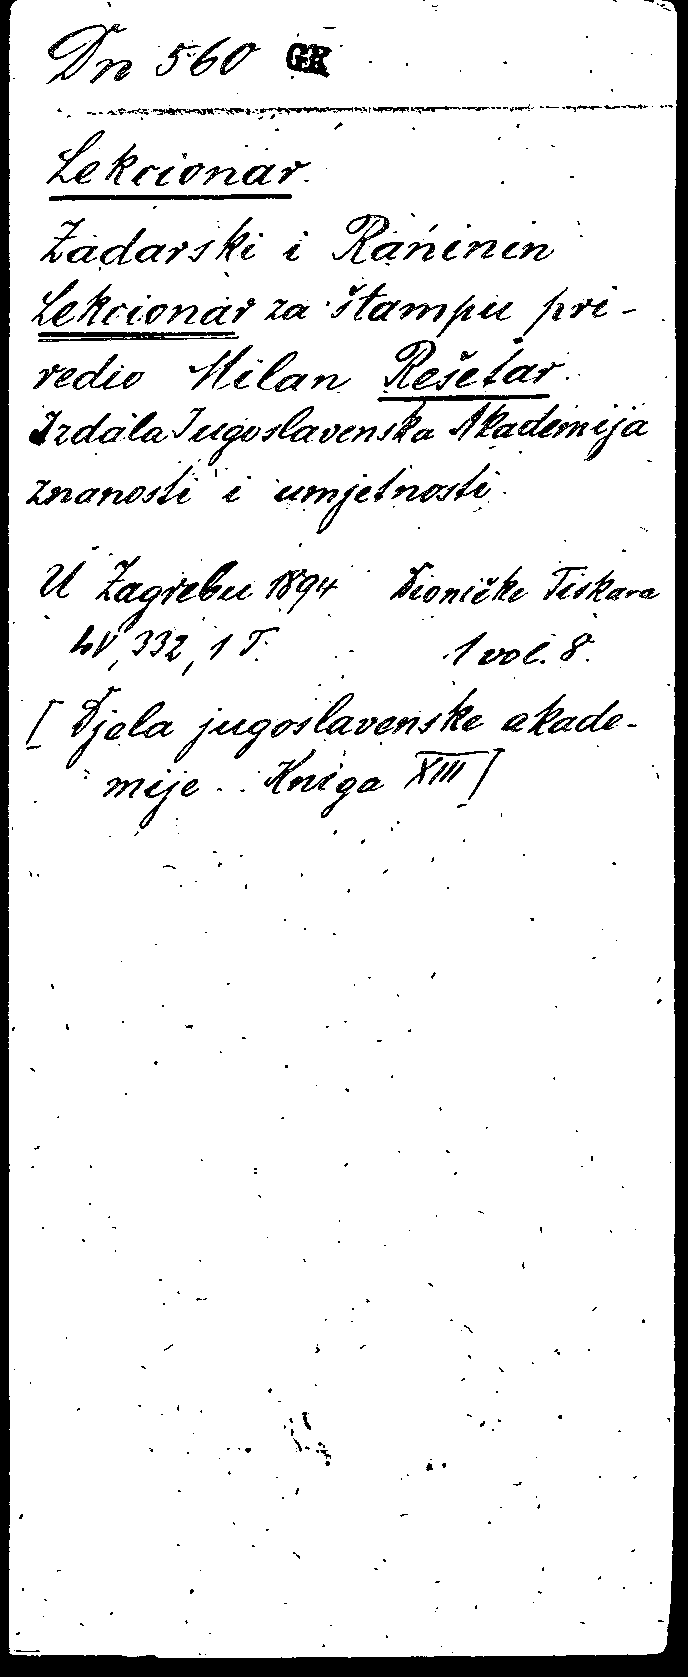 Dn 560 GK
Lekcionar.
Zadarski i Rańinin
Lekcionar za štampu pri-
redio Milan Rešetar.
Izdala Jugoslavenska Akademija
znanosti i umjetnosti.
U Zagrebu 1894 Dioničke Tiskara
LV, 332, 1 T. 1 vol. 8.
[Djela jugoslavenske akade-
mije.. Kniga XIII]